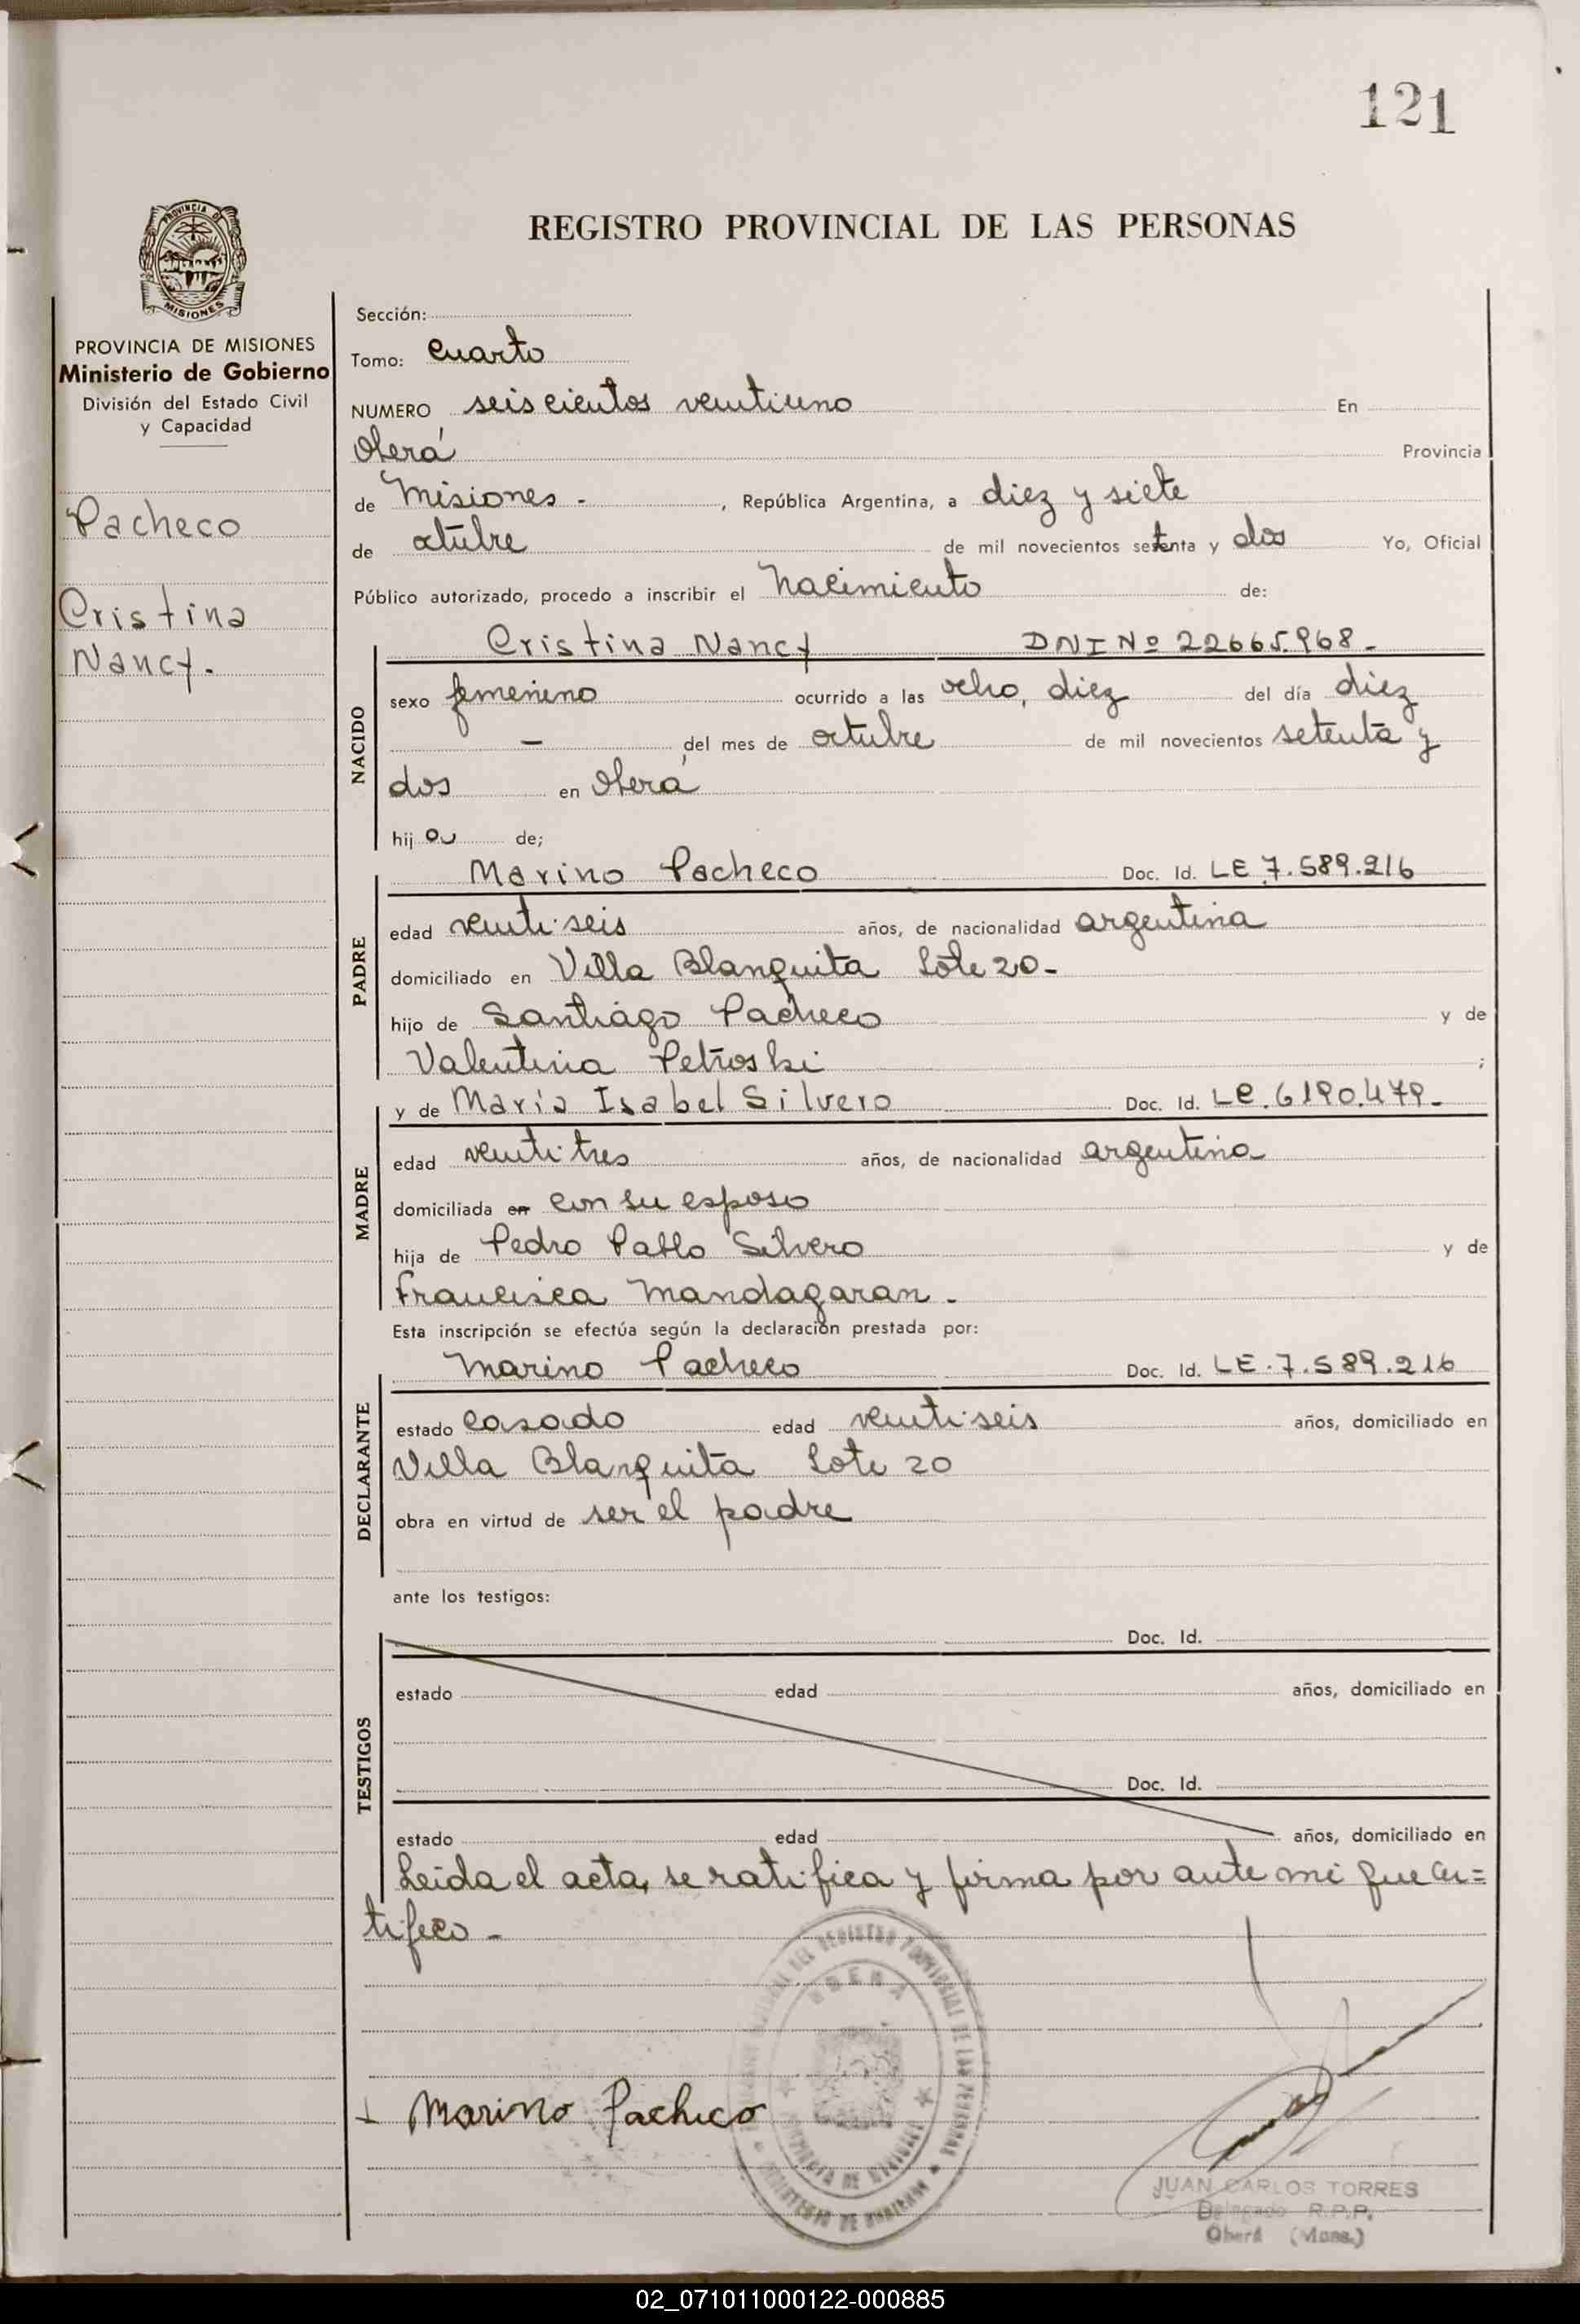 121
REGISTRO PROVINCIAL DE LAS PERSONAS
PROVINCIA DE
MISIONES
PROVINCIA DE MISIONES
Ministerio de Gobierno
División del Estado Civil
y Capacidad
Pacheco
Cristina
Nancy.
Sección:
Tomo: Cuarto
NUMERO seiscientos veintiuno En
Oberá Provincia
de Misiones - , República Argentina, a diez y siete
de octubre de mil novecientos setenta y dos Yo, Oficial
Público autorizado, procedo a inscribir el Nacimiento de:
NACIDO
Cristina Nancy DNI Nº 22665.968-
sexo femenino ocurrido a las ocho, diez del día diez
- del mes de octubre de mil novecientos setenta y
dos en Oberá
hija de;
PADRE
Marino Pacheco Doc. Id. LE 7.589.216
edad veintiseis años, de nacionalidad argentina
domiciliado en Villa Blanquita Lote 20-
hijo de Santiago Pacheco y de
Valentina Petroski ;
MADRE
y de María Isabel Silvero Doc. Id. LC.6190.479-
edad veintitres años, de nacionalidad argentina
domiciliada en con su esposo
hija de Pedro Pablo Silvero y de
Francisca Mandagaran -
Esta inscripción se efectúa según la declaración prestada por:
DECLARANTE
Marino Pacheco Doc. Id. LE.7.589.216
estado casado edad veintiseis años, domiciliado en
Villa Blanquita Lote 20
obra en virtud de ser el padre
ante los testigos:
TESTIGOS
Doc. Id.
estado edad años, domiciliado en
Doc. Id.
estado edad años, domiciliado en
Leída el acta, se ratifica y firma por ante mi que cer=
tifico -
Marino Pacheco
DEL REGISTRO PROVINCIAL DE LAS PERSONAS
OBERA
PROVINCIA DE MISIONES
MINISTERIO DE GOBIERNO
JUAN CARLOS TORRES
Delegado R.P.P.
Oberá (Mnes.)
02_071011000122-000885